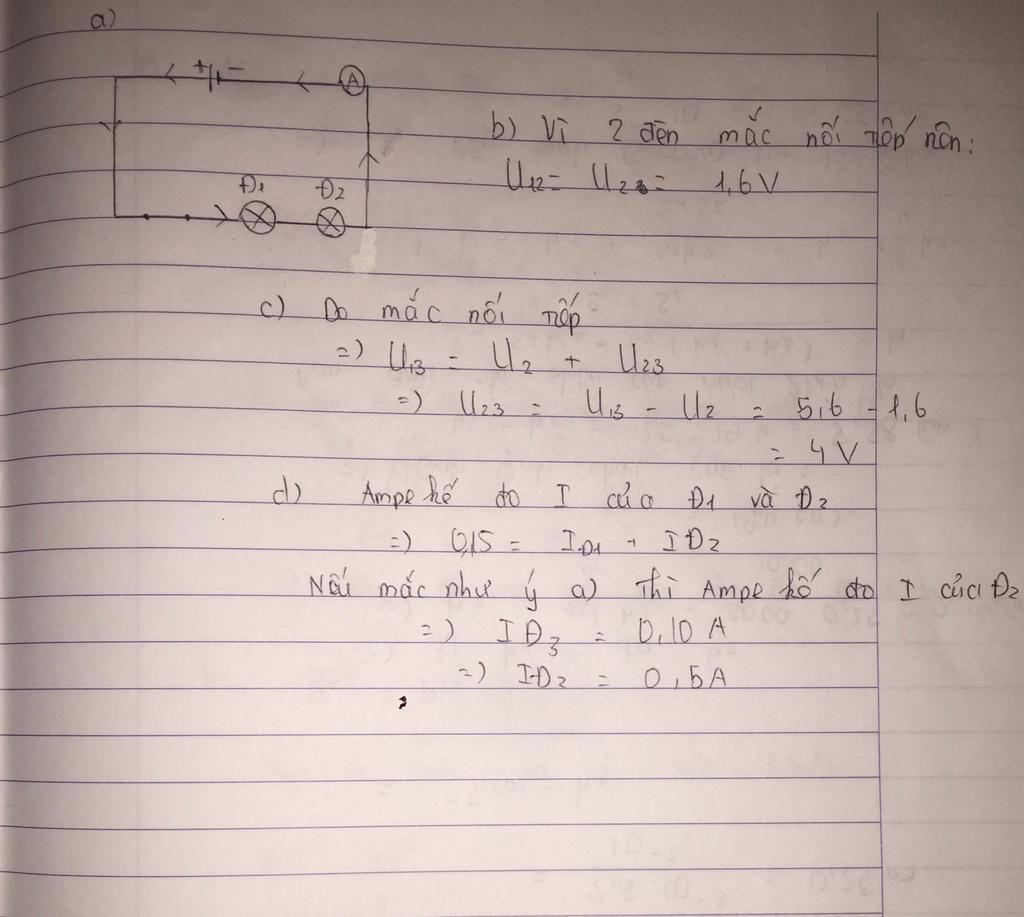 a)
+ -
A
Đ1 Đ2
b) Vì 2 đèn mắc nối tiếp nên:
U12 = U23 = 1,6V
c) Do mắc nối tiếp
=) U13 = U2 + U23
=) U23 = U13 - U2 = 5,6 - 1,6
= 4V
d) Ampe kế đo I của Đ1 và Đ2
=) 0,15 = IĐ1 + IĐ2
Nếu mắc như ý a) thì Ampe kế đo I của Đ2
=) IĐ3 = 0,10 A
=) IĐ2 = 0,5A